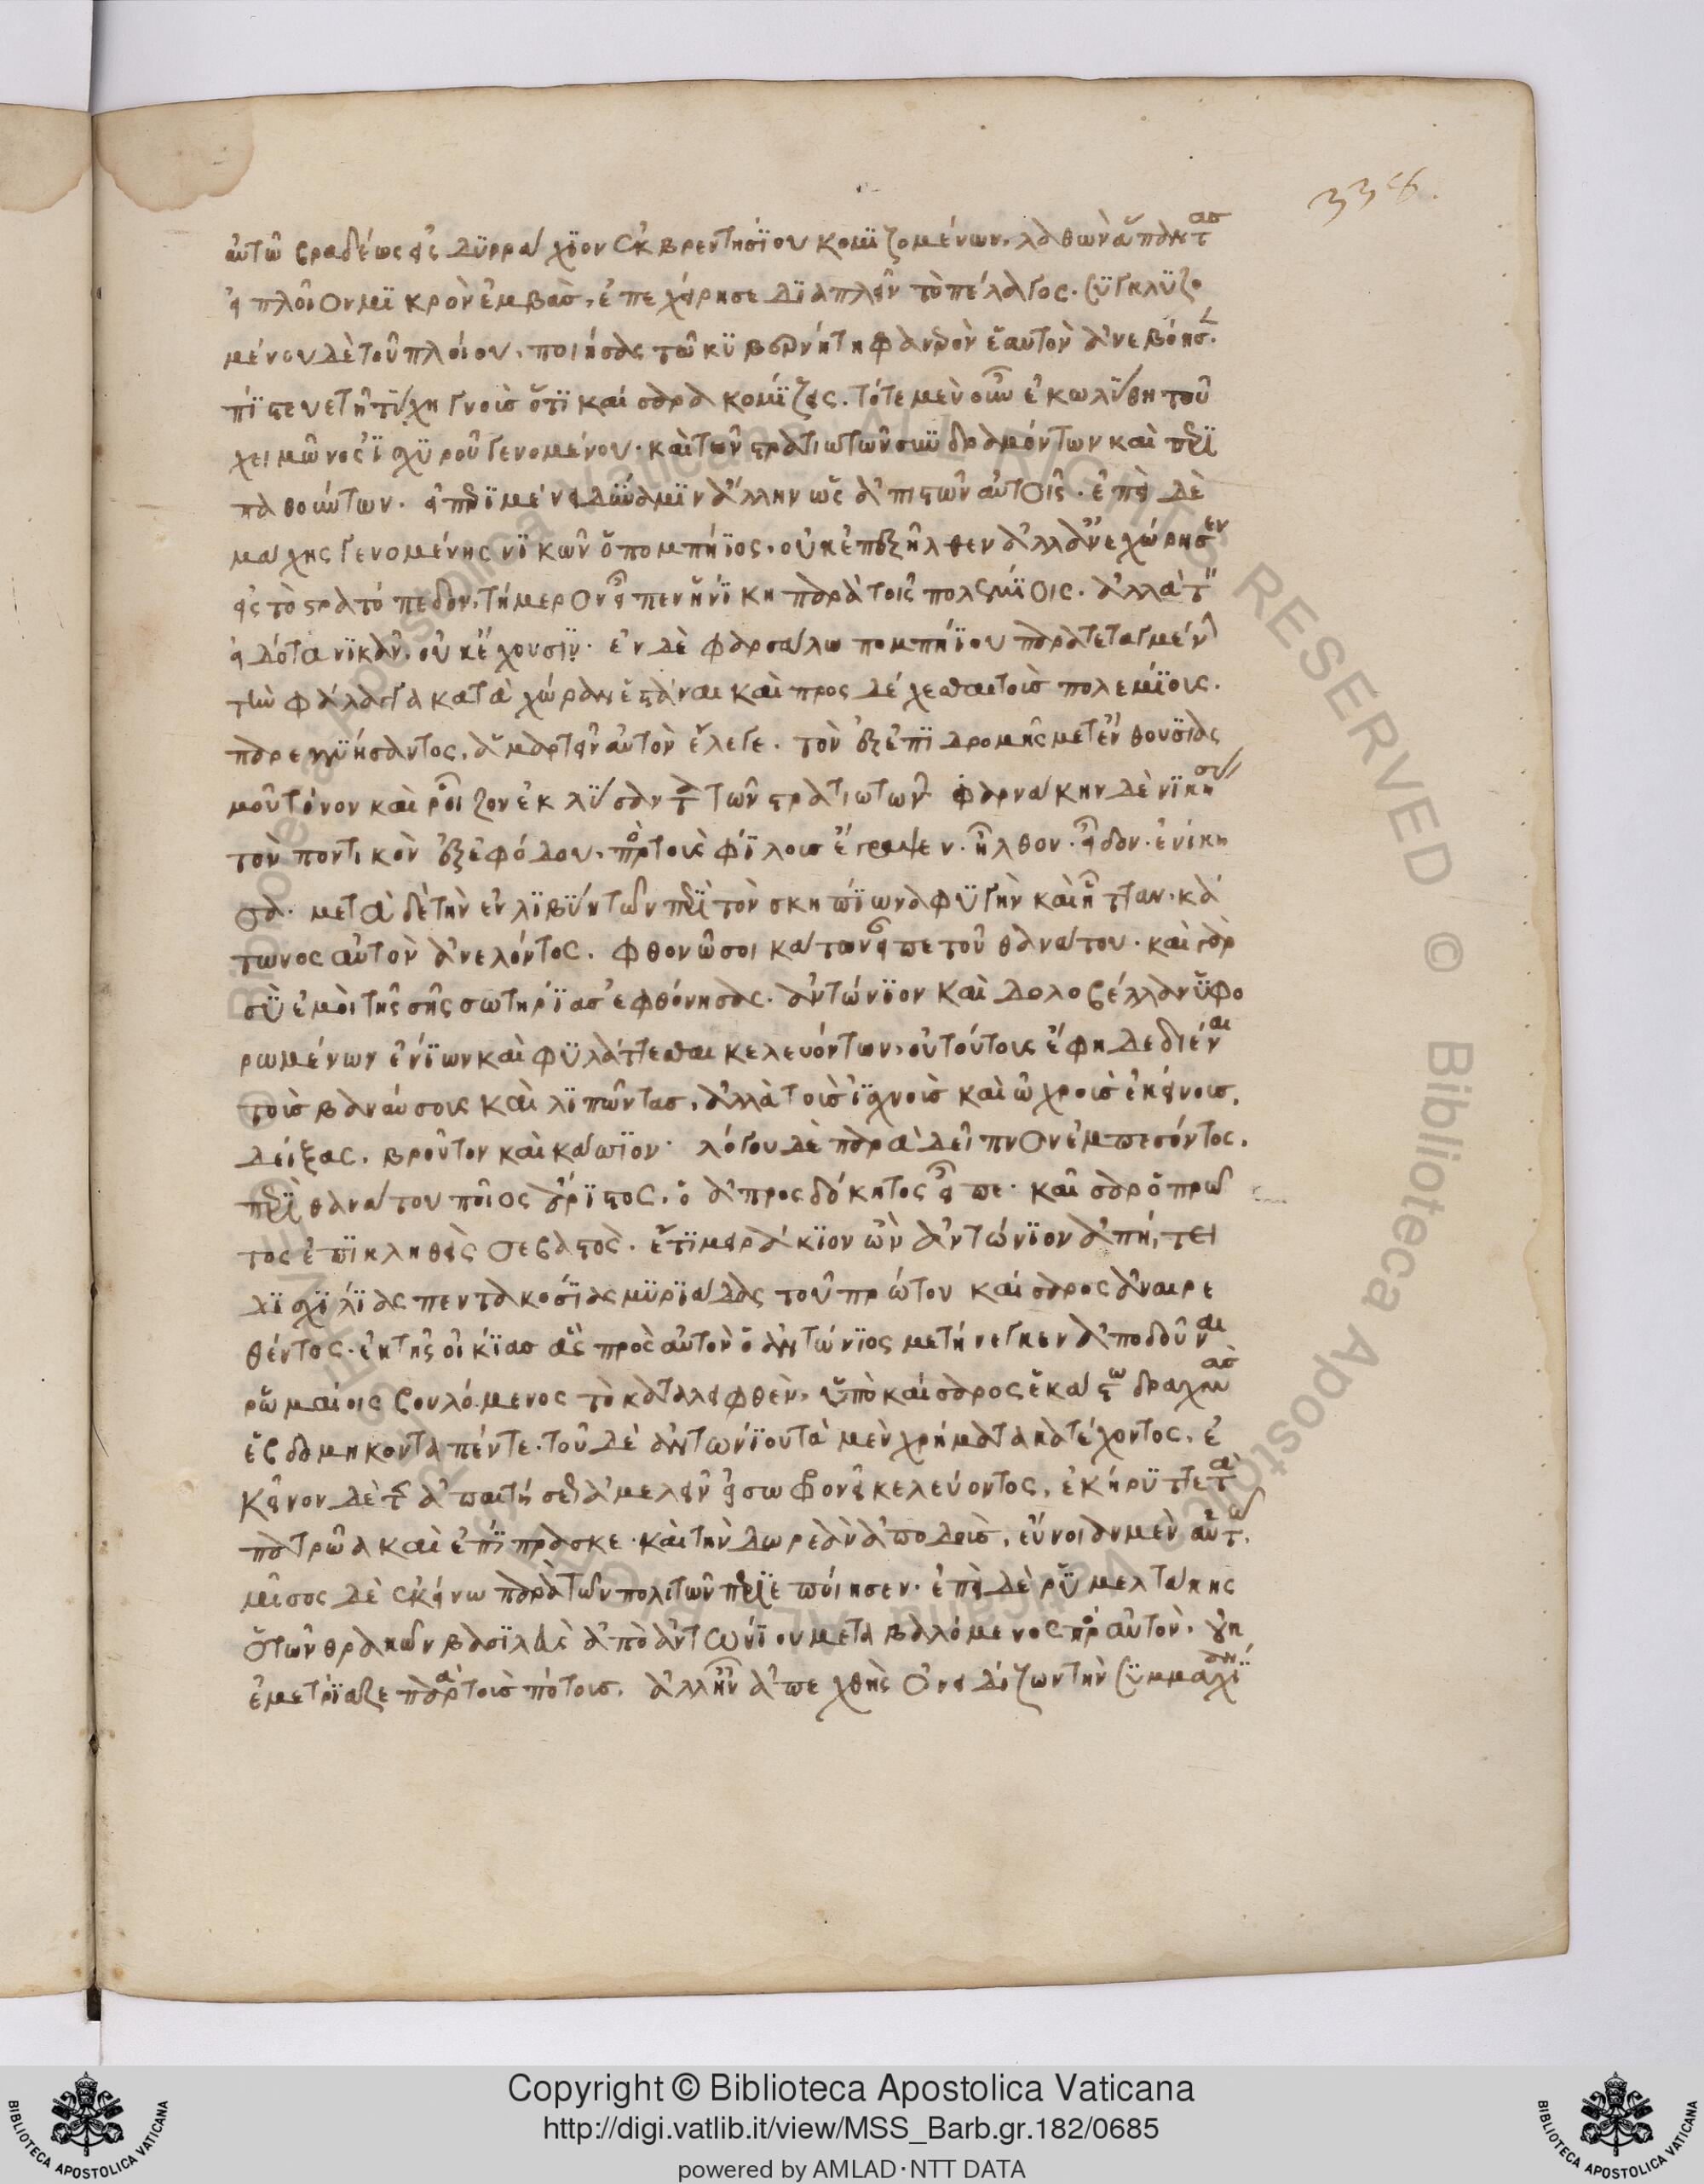 338.
αὐτῶ βραδέως εἰς δυρράχϊον ἐκ βρεντησΐου κομϊζομένων, λαθὼν ἅπαντας
εἰ πλοῖον μϊκρὸν ἐμβὰς, ἐπεχείρησε δϊαπλεῖν τὸ πέλαγος. συγκλυζο
μένου δὲ τοῦ πλοίου, ποιήσας τῶ κυβερνήτη φανερὸν ἑαυτὸν ἀνεβόησ.
πΐστευε τῆ τύχη γνοὺς ὅτϊ καίσαρα κομΐζεις. τότε μὲν οὖν ἐκωλύθη τοῦ
χειμῶνος ἰσχυροῦ γενομένου. καὶ τῶν στρατιωτῶν συνδραμόντων καὶ περϊ
παθούντων. εἰ περϊμένει δύναμϊν ἄλλην ὡς ἀπιστῶν αὐτοῖς. ἐπεὶ δὲ
μάχης γενομένης νϊκῶν ὁ πομπήϊος, οὐκ ἐπεξῆλθεν ἀλλ᾽ ἀνεχώρησεν
εἰς τὸ στρατόπεδον, τήμερον εἶπεν ἡ νΐκη παρὰ τοῖς πολεμΐοις. ἀλλὰ τ
εἰδότα νϊκᾶν, οὐκ ἔχουσϊν. ἐν δὲ φαρσάλω πομπηΐου παρατεταγμέν
τὴν φάλαγγα κατὰ χώραν ἑστάναι καὶ προσδέχεσθαι τοὺς πολεμΐους.
παρεγγυήσαντος, ἁμαρτεῖν αὐτὸν ἔλεγε. τὸν ἐξ ἐπϊδρομῆς μετ᾽ ἐνθουσϊας
μοῦ τόνον καὶ ῥοῖζον ἐκλύσαντα τῶν στρατιωτῶν φαρνάκην δὲ νϊκησ
τὸν ποντικὸν ἐξ ἐφόδου, πρὸς τοὺς φΐλους ἔγραψεν. ἦλθον. εἶδον. ἐνίκη
σα. μετὰ δὲ τὴν ἐν λϊβύη τῶν περϊ τὸν σκηπΐωνα φυγὴν καὶ ἧτταν. κά
τωνος αὐτὸν ἀνελόντος. φθονῶ σοι κάτων εἶπε τοῦ θανάτου. καὶ γὰρ
σὺ ἐμοὶ τῆς σῆς σωτηρΐας ἐφθόνησας. ἀντώνϊον καὶ δολοβέλλαν ὑφο
ρωμένων ἐνΐων καὶ φυλάττεσθαι κελευόντων, οὐ τούτους ἔφη δεδιέναι
τοὺς βαναύσους καὶ λϊπῶντας, ἀλλὰ τοὺς ἰσχνοὺς καὶ ὠχροὺς ἐκείνους,
δείξας. βροῦτον καὶ κάσϊον. λόγου δὲ παρὰ δεῖπνον ἐμπεσόντος.
περϊ θανάτου ποῖος ἄρϊστος, ὁ ἀπροσδόκητος εἶπε. καῖσαρ ὁ πρῶ
τος ἐπϊκληθεὶς σεβαστὸς. ἔτϊ μειράκϊον ὢν ἀντώνϊον ἀπήτει
δϊσχϊλΐας πεντακοσΐας μυρϊάδας τοῦ πρώτου καίσαρος ἀναιρε
θέντος. ἐκ τῆς οἰκΐας ἃς πρὸς αὐτὸν ὁ ἀντώνϊος μετήνεγκεν ἀποδοῦναι
ῥωμαίοις βουλόμενος τὸ καταλειφθὲν, ὑπὸ καίσαρος ἑκάστω δραχμὰς
ἑβδομηκονταπέντε. τοῦ δὲ ἀντωνΐου τὰ μὲν χρήματα κατέχοντος, ἐ
κεῖνον δὲ τῆς ἀπαιτήσεως ἀμελεῖν εἰ σωφρονεῖ κελεύοντος, ἐκήρυττε τὰ
πατρῶα καὶ ἐπΐπρασκε. καὶ τὴν δωρεὰν ἀποδοὺς, εὔνοιαν μὲν αὑτῶ,
μῖσος δὲ ἐκείνω παρὰ τῶν πολιτῶν περϊεποίησεν. ἐπεὶ δὲ ῥυμελτάκης
ὁ τῶν θρακῶν βασϊλεὺς ἀπὸ ἀντωνΐου μεταβαλόμενος πρὸς αὐτὸν. οὐκ
ἐμετρΐαζε παρὰ τοὺς πότους. ἀλλ᾽ ἦν ἀπεχθὴς ὀνειδίζων τὴν συμμαχΐαν
Copyright © Biblioteca Apostolica Vaticana
http://digi.vatlib.it/view/MSS_Barb.gr.182/0685
powered by AMLAD·NTT DATA